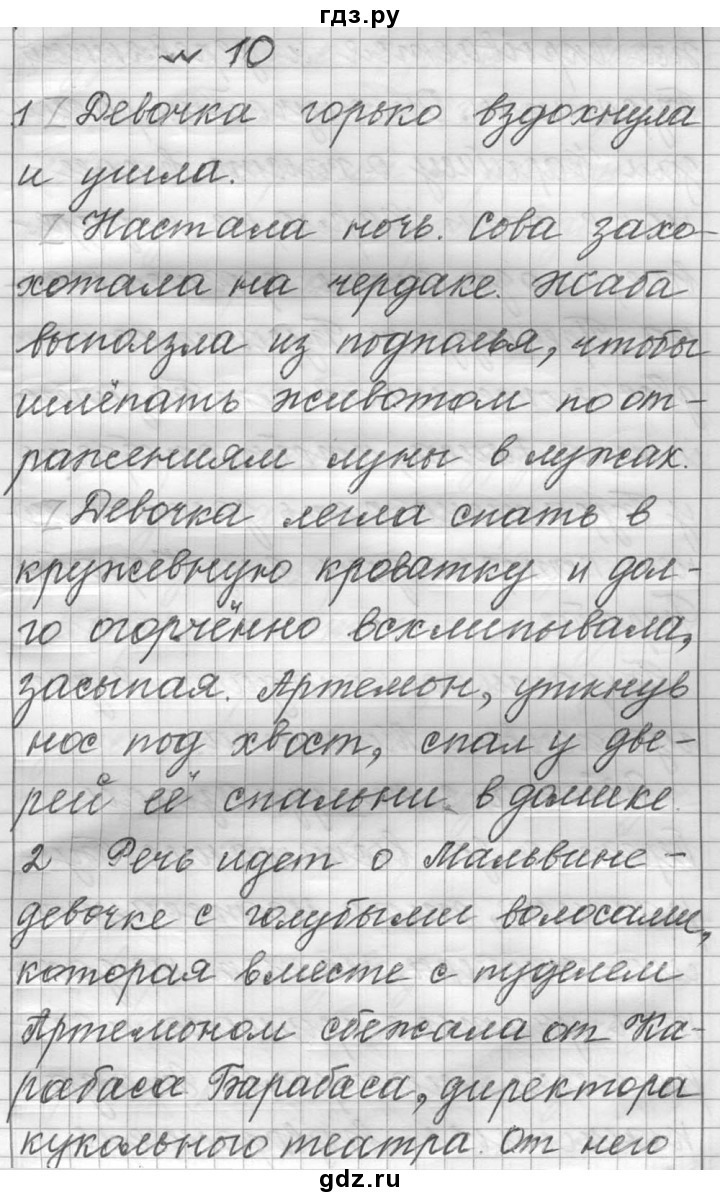 гдз.ру
№ 10
1 Z Девочка горько вздохнула
и ушла.
Z Настала ночь. Сова захо-
хотала на чердаке. Жаба
выползла из подполья, чтобы
шлёпать животом по от-
ражениям луны в лужах.
Z Девочка легла спать в
кружевную кроватку и дол-
го огорчённо всхлипывала,
засыпая. Артемон, уткнув
нос под хвост, спал у две-
рей её спальни в домике.
2 Речь идет о Мальвине -
девочке с голубыми волосами,
которая вместе с пуделем
Артемоном сбежала от Ка-
рабаса Барабаса, директора
кукольного театра. От него
gdz.ru